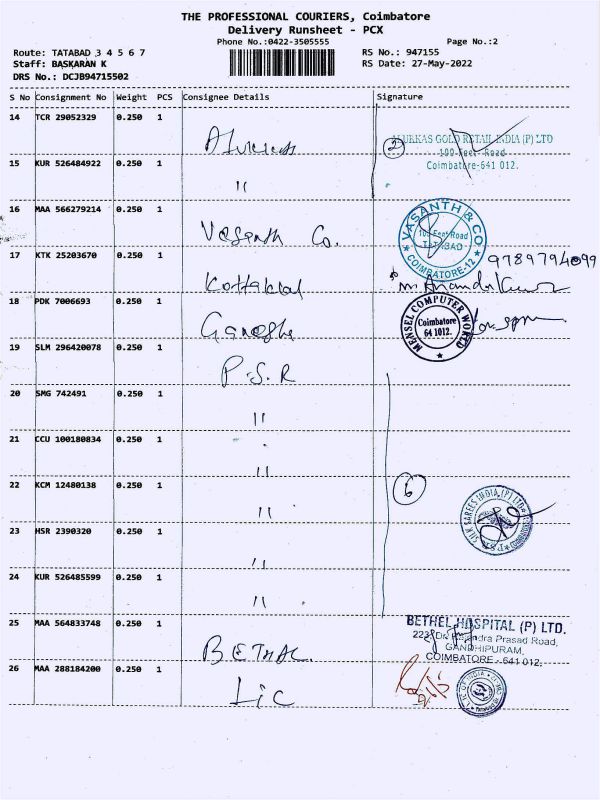 THE PROFESSIONAL COURIERS, Coimbatore
Delivery Runsheet - PCX
Phone No.:0422-3505555
Page No.:2
Route: TATABAD 3 4 5 6 7
RS No.: 947155
Staff: BASKARAN K
RS Date: 27-May-2022
DRS No.: DCJB94715502
S No Consignment No Weight PCS Consignee Details Signature
14 TCR 29052329 0.250 1
2 ALUKKAS GOLD RETAIL INDIA (P) LTD
100 Feet Road
Coimbatore-641 012.
15 KUR 526484922 0.250 1 "
16 MAA 566279214 0.250 1 Vasanth Co.
VASANTH & CO
100 Feet Road
TATABAD
COIMBATORE-12
17 KTK 25203670 0.250 1 Kottakkal
9789794099
18 PDK 7006693 0.250 1 Ganesha
MENSEL COMPUTER WORLD
Coimbatore
64 1012.
19 SLM 296420078 0.250 1 P.S.R
20 SMG 742491 0.250 1 "
21 CCU 100180834 0.250 1 "
22 KCM 12480138 0.250 1 "
6
SILK SAREES INDIA (P) LTD
23 HSR 2390320 0.250 1 "
24 KUR 526485599 0.250 1 "
25 MAA 564833748 0.250 1 BETHAL
BETHEL HOSPITAL (P) LTD.
Prasad Road,
GANDHIPURAM,
COIMBATORE - 641 012.
26 MAA 288184200 0.250 1 Lic